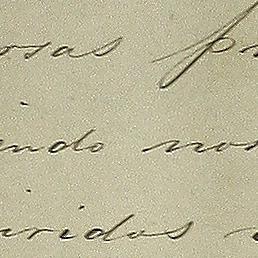 osas p
indo nos
uridos